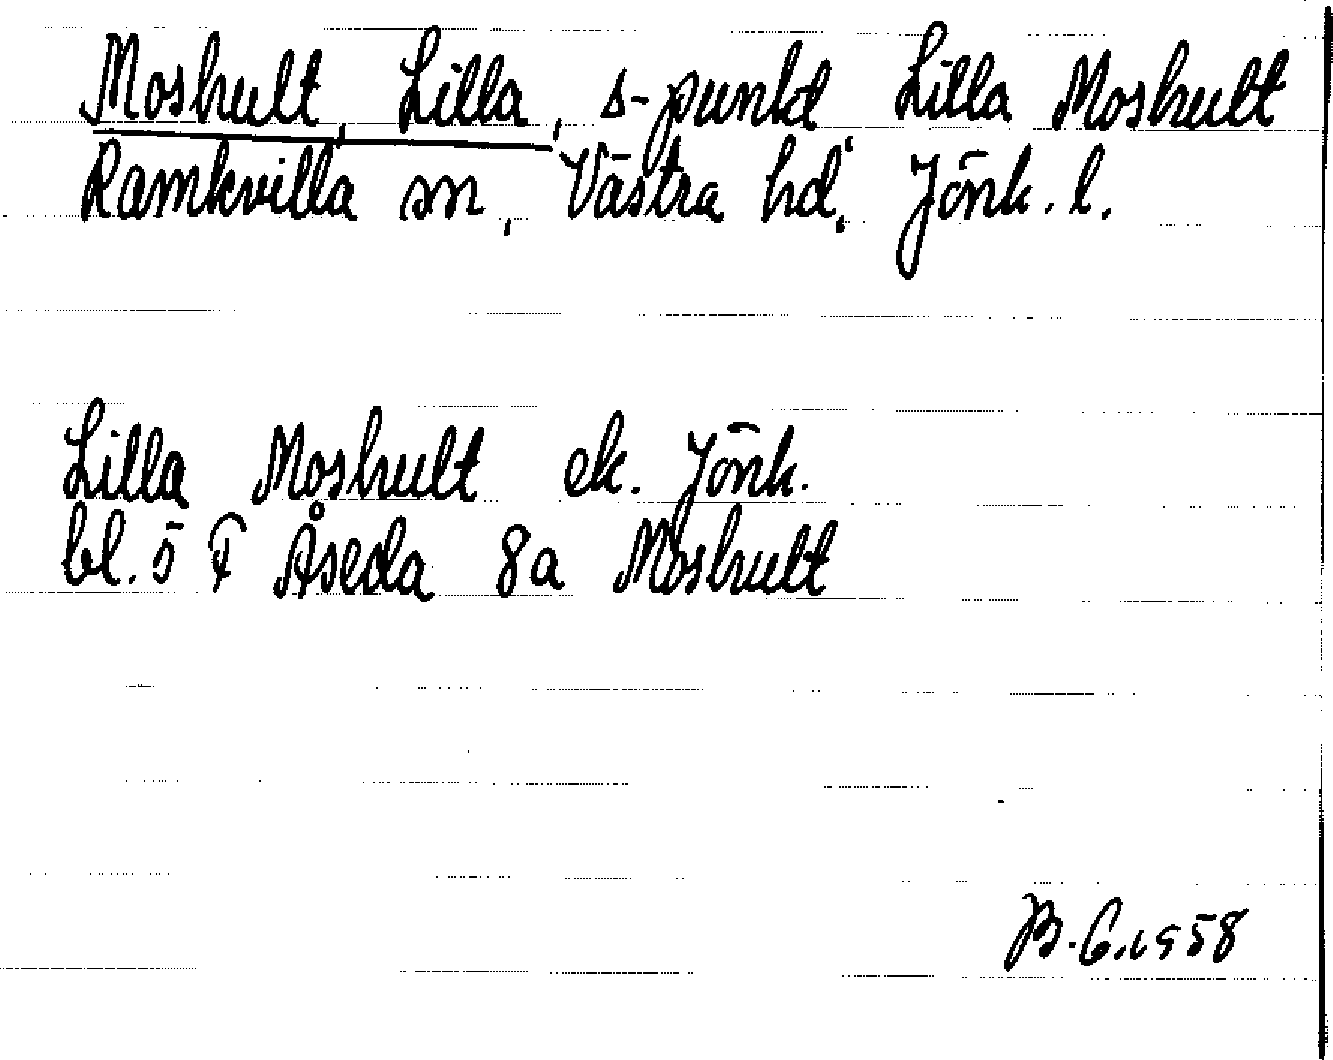 Moshult, Lilla, s-punkt Lilla Moshult
Ramkvilla sn, Västra hd, Jönk. l.
Lilla Moshult ek. Jönk.
bl. 5 F Åseda 8a Moshult
B.G. 1958